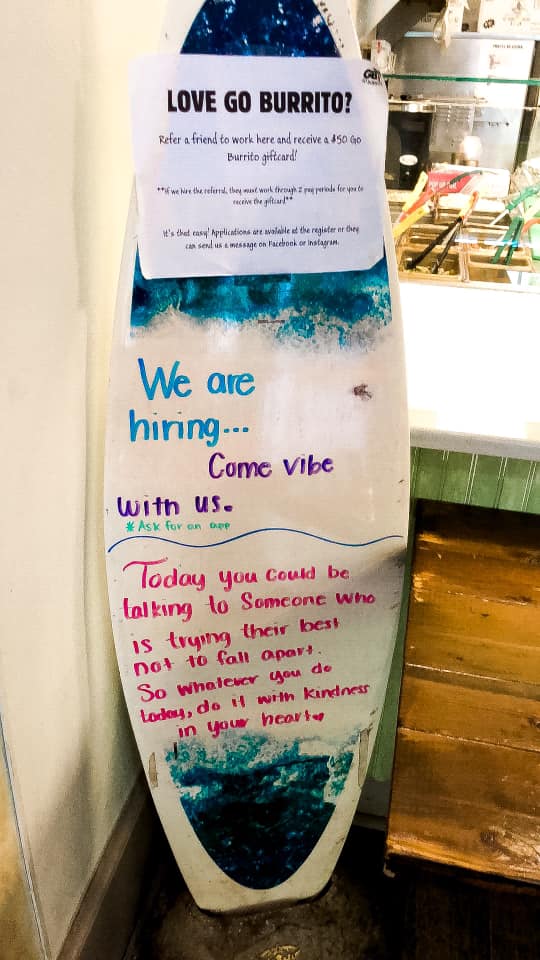 LOVE GO BURRITO?
Refer a friend to work here and receive a $50 Go
Burrito giftcard!
**If we hire the referral, they must work through 2 pay periods for you to
receive the giftcard**
It's that easy! Applications are available at the register or they
can send us a message on Facebook or Instagram.
We are
hiring...
Come vibe
with us.
*Ask for an app
Today you could be
talking to Someone who
is trying their best
not to fall apart.
So whatever you do
today, do it with kindness
in your heart♥